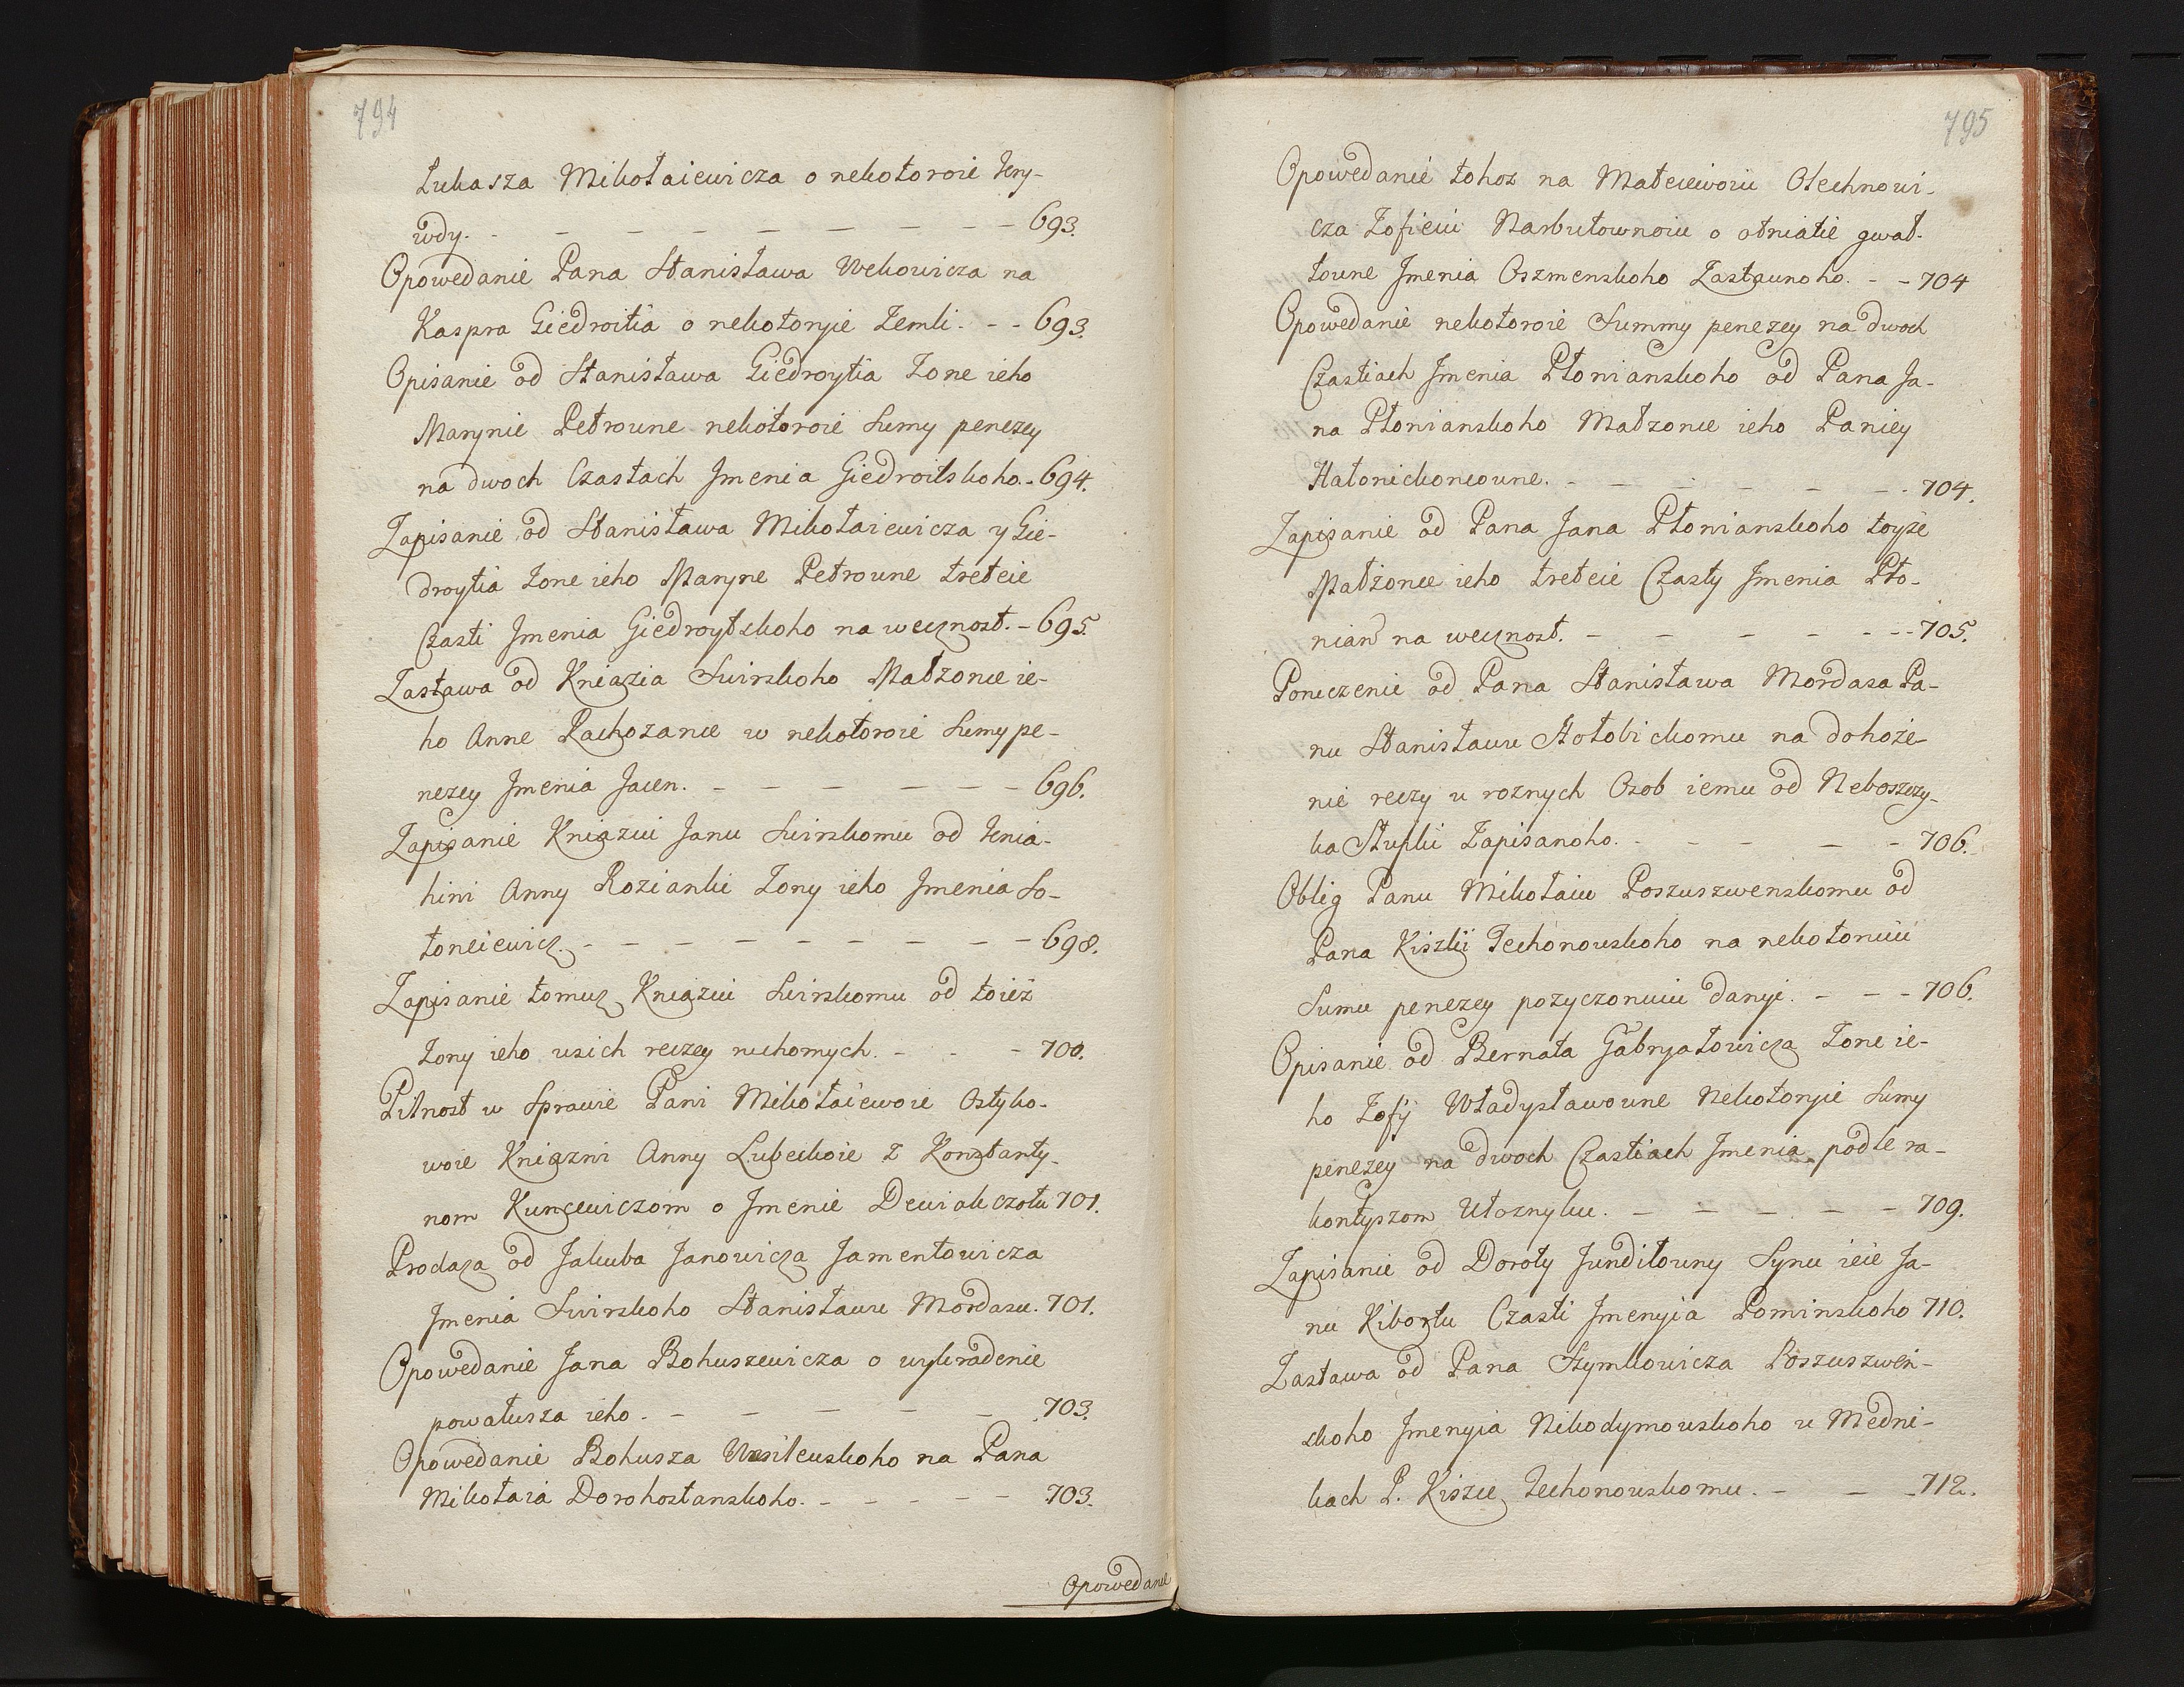 794
Łukasza Mikołaiewicza o nekotoroie kry-
wdy. - - - - - - - - - 693.
Opowedanie Pana Stanisława Wekowicza na
Kaspra Giedroitia o nekotoryie Zemli. - - 693.
Opisanie od Stanisława Giedroytia Zone ieho
Marynie Petrowne nekotoroie Sumy penezey
na dwoch Czastach Jmenia Giedroitskoho. - 694.
Zapisanie od Stanisława Mikołaiewicza y Gie-
droytia Zone ieho Maryne Petrowne treteie
Czasti Jmenia Giedroytskoho na wecznost. - 695.
Zastawa od Kniazia Swirskoho Małzonce ie-
ho Anne Rachozance w nekotoroie Sumy pe-
nezey Jmenia Jacen. - - - - - - 696.
Zapisanie Kniaziu Janu Swirskomu od knia-
hini Anny Rozianki Zony ieho Jmenia So-
łoneiewicz. - - - - - - - - 698.
Zapisanie tomuz Kniaziu Swirskomu od toież
Zony ieho usich reczey ruchomych. - - - 700.
Pilnost w Sprawie Pani Mikołaiewoie Ostyko-
woie Kniazni Anny Lubeckoie z Konstanty-
nom Kuncewiczom o Jmenie Dewiakczołu 701.
Prodaza od Jakuba Janowicza Jamentowicza
Jmenia Swirskoho Stanisławu Mordasu. 701.
Opowedanie Jana Bohuszewicza o wykradenie
powatusza ieho. - - - - - 703.
Opowedanie Bohusza Wasilewskoho na Pana
Mikołaia Dorohostanskoho. - - - - - 703.
Opowedanie
795
Opowedanie tohoz na Mateiewoiu Olechnowi-
cza Zofieiu Narbutownoiu o otniatie gwał-
towne Jmenia Oszmenskoho Zastawnoho. - - 704
Opowedanie nekotoroie Summy penezey na dwoch
Czastiach Jmenia Płonianskoho od Pana Ja-
na Płonianskoho Małzonce ieho Paniey
- - - - - - 704.
Zapisanie od Pana Jana Płonianskoho toyże
Małżonce ieho treteie Czasty Jmenia Pło-
nian na wecznost. - - - - - - - 705.
Poruczenie od Pana Stanisława Mordasa Pa-
nu Stanisławu Hołobickomu na dohoże-
nie reczy u roznych Osob iemu od Neboszczy-
ka Stupki Zapisanoho. - - - - - 706.
Oblig Panu Mikołaiu Poszuszwenskomu od
Pana Kiszki Techonowskoho na nekotoruiu
Sumu penezey pozyczonuiu danyi. - - - 706.
Opisanie od Bernata Gabryałowicza Zone ie-
ho Zofij Władysławowne Nekotoryie Sumy
penezey na dwoch Czastiach Jmenia podle ra-
kontyszom Utoznyku. - - - - - 709.
Zapisanie od Doroty Jundiłowny Synu ieie Ja-
nu Kibortu Czasti Jmenyia Pominskoho 710.
Zastawa od Pana Szymkowicza Poszuszwen-
skoho Jmenyia Nikodymowskoho u Medni-
kach P. Kiszce Techonowskomu. - - - 712.